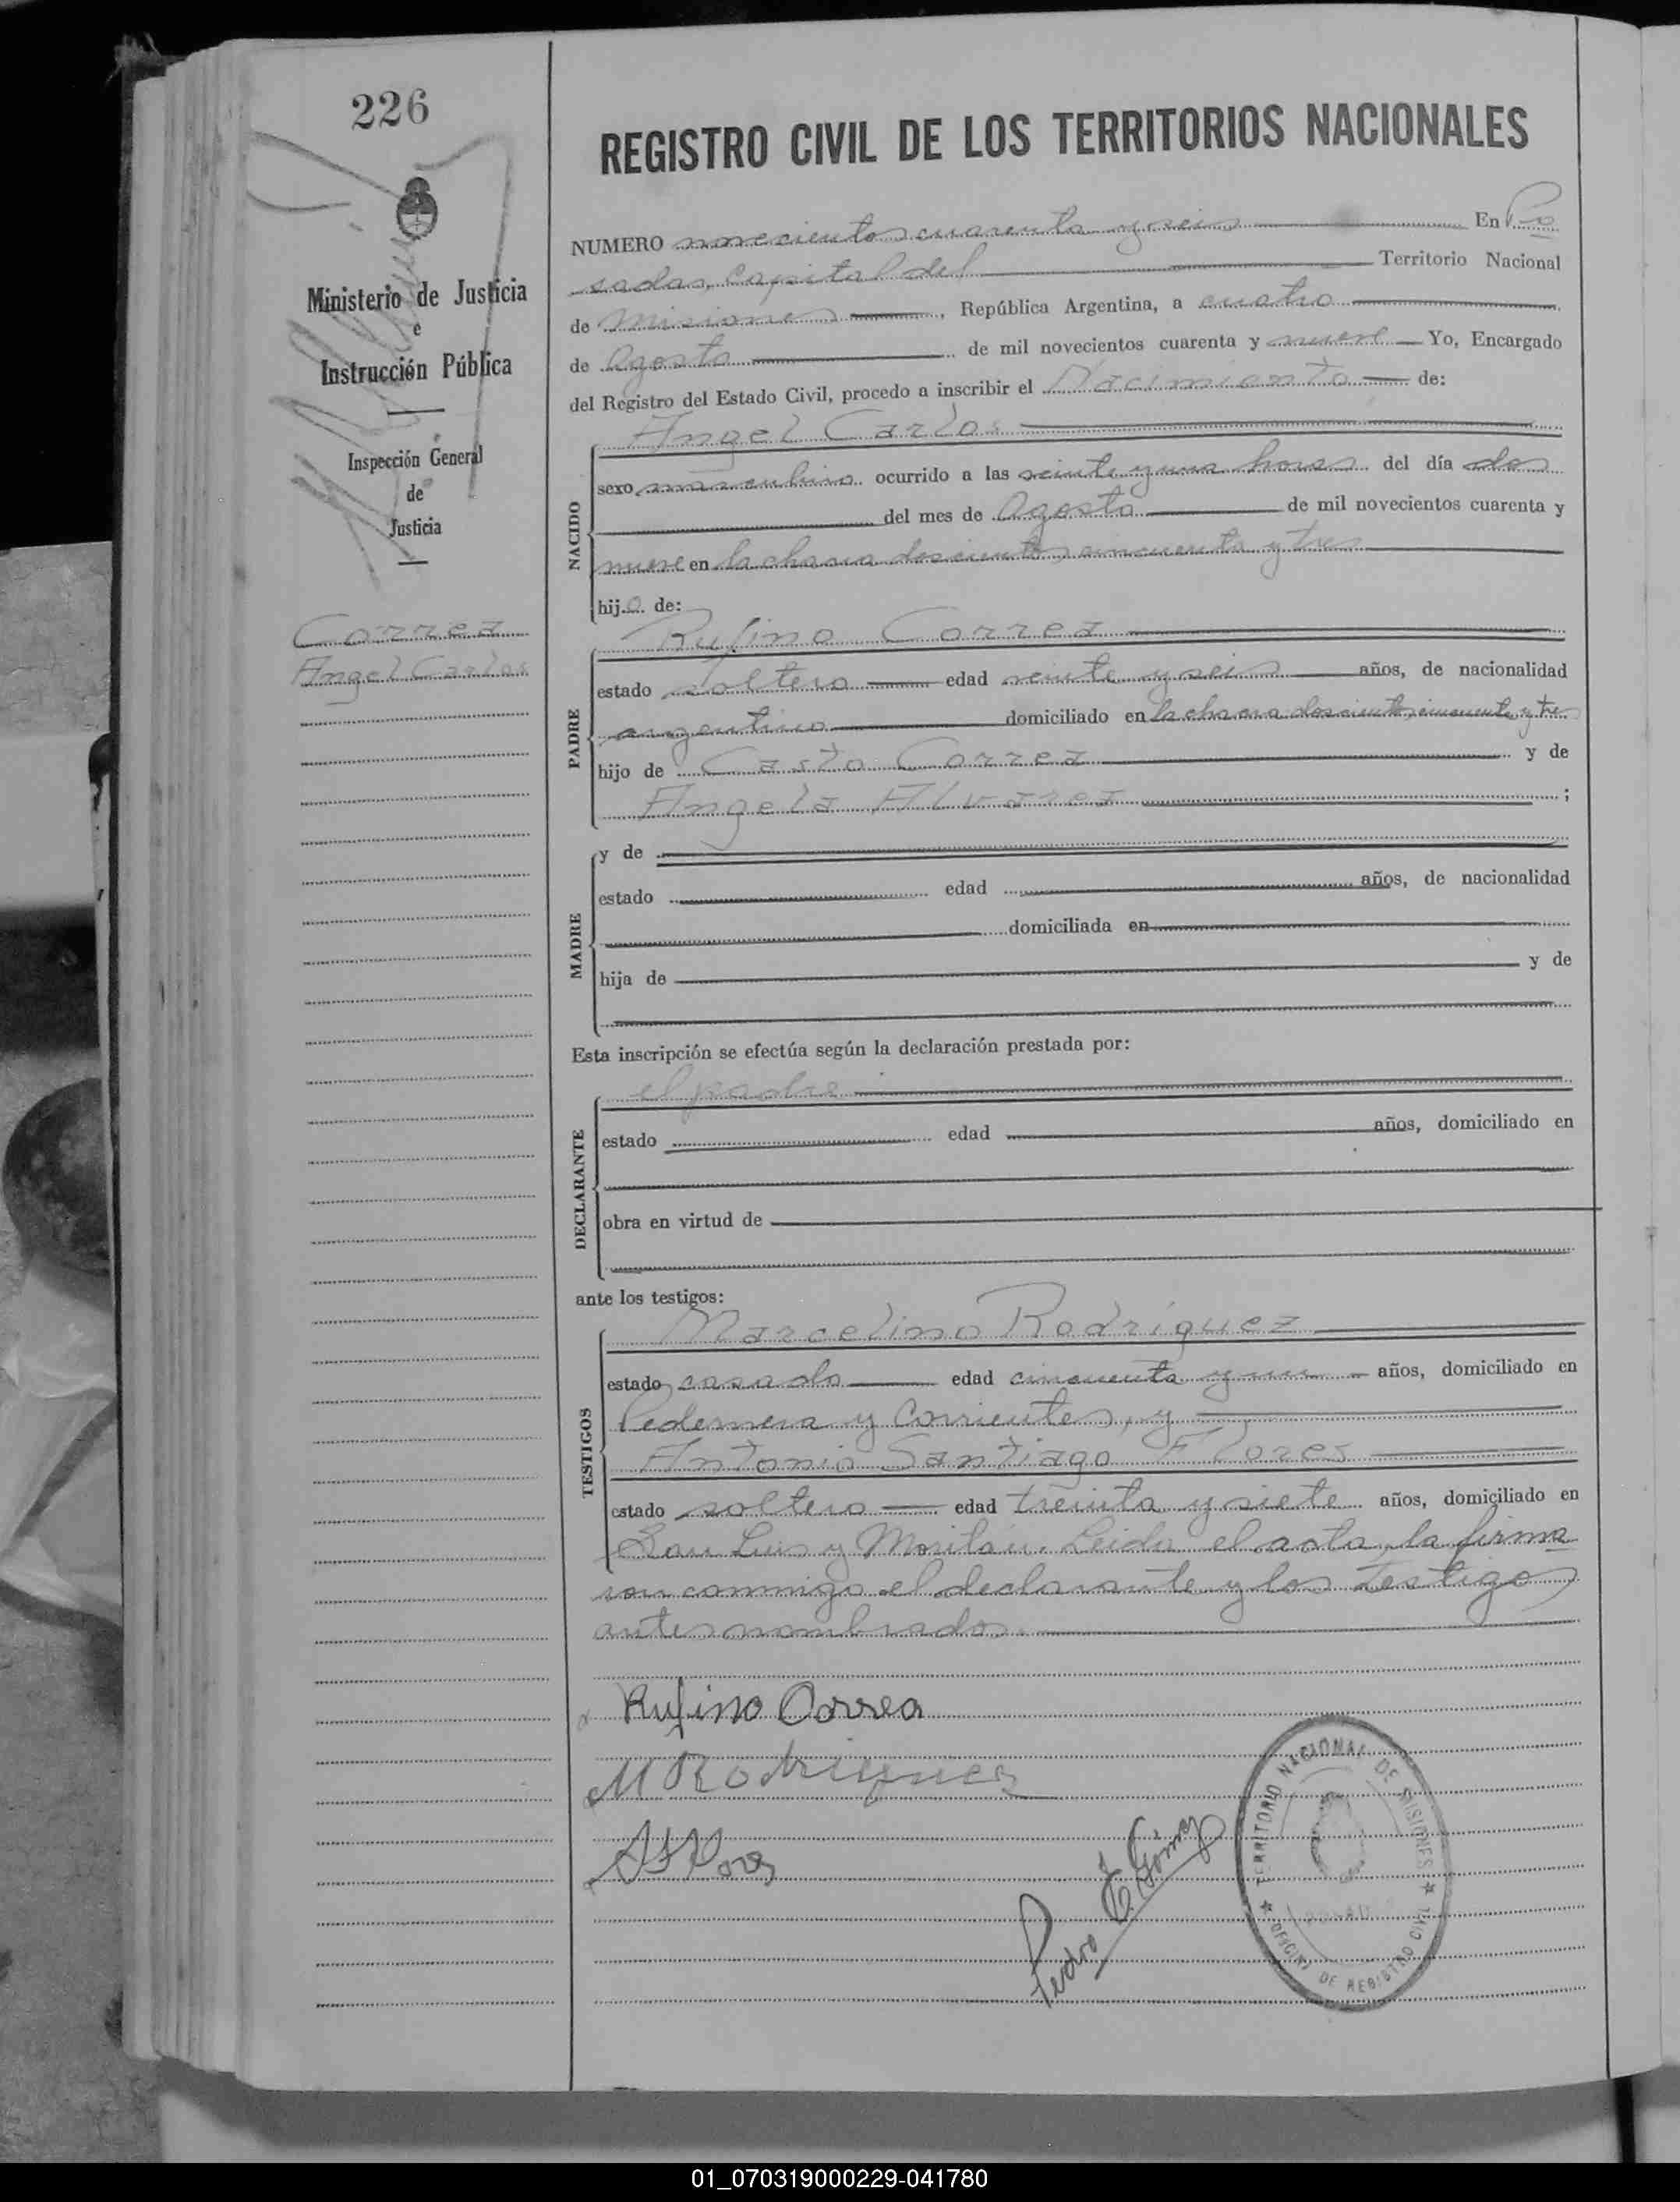 226
REGISTRO CIVIL DE LOS TERRITORIOS NACIONALES
NUMERO novecientos cuarenta y seis En Po
sadas, Capital del Territorio Nacional
de Misiones, República Argentina, a cuatro
de Agosto de mil novecientos cuarenta y nueve Yo, Encargado
del Registro del Estado Civil, procedo a inscribir el Nacimiento de:
Ministerio de Justicia
e
Instrucción Pública
Inspección General
de
Justicia
Correa
Angel Carlos
NACIDO
Angel Carlos
sexo masculino ocurrido a las veinte y una horas del día dos
del mes de Agosto de mil novecientos cuarenta y
nueve en la chacra doscientos cincuenta y tres
hijo de:
PADRE
Rufino Correa
estado soltero edad veinte y seis años, de nacionalidad
argentino domiciliado en la chacra doscientos cincuenta y tres
hijo de Casto Correa y de
Angela Alvarez ;
MADRE
y de
estado edad años, de nacionalidad
domiciliada en
hija de y de
Esta inscripción se efectúa según la declaración prestada por:
DECLARANTE
el padre
estado edad años, domiciliado en
obra en virtud de
ante los testigos:
TESTIGOS
Marcelino Rodríguez
estado casado edad cincuenta y un años, domiciliado en
Pedernera y Corrientes, y
Antonio Santiago Flores
estado soltero edad treinta y siete años, domiciliado en
San Luis y Moritán. Leida el acta, la firma
ron conmigo el declarante y los testigos
antes nombrados.
Rufino Correa
M Rodriguez
A S Flores
Pedro E. Gómez
TERRITORIO NACIONAL DE MISIONES
OFICINA DE REGISTRO CIVIL
01_070319000229-041780